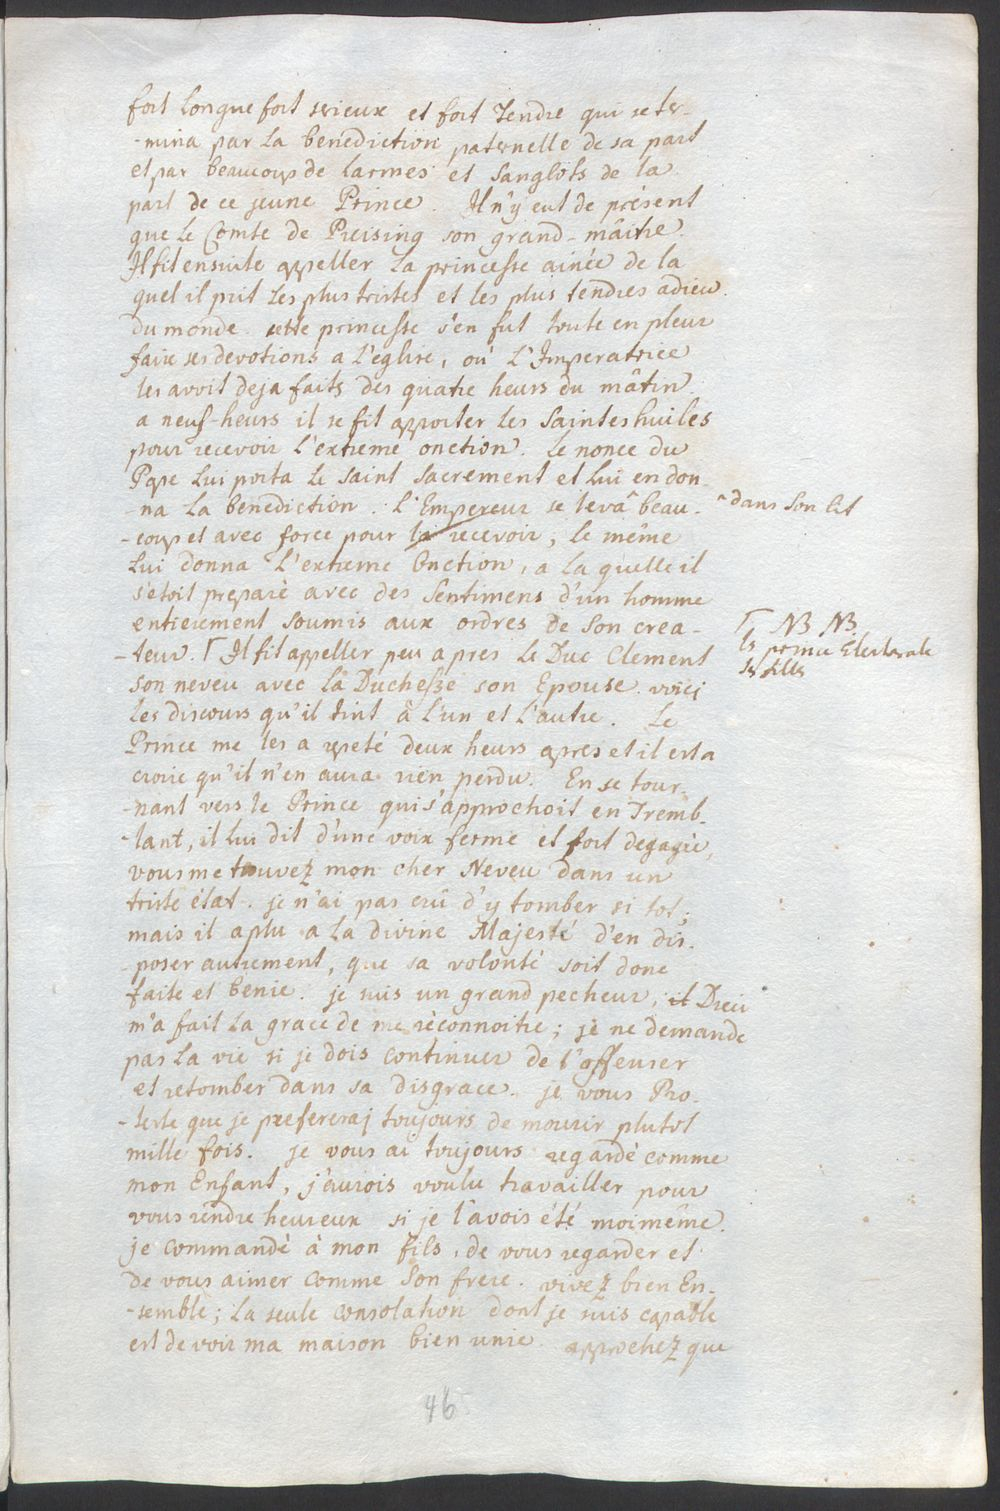 fort longue fort serieux et fort tendre qui se ter-
-mina par la benediction paternelle de sa part
et par beaucoup de larmes et sanglots de la
part de ce jeune Prince. Il n'y eut de présent
que le Comte de Preising son grand-mâitre.
Il fit ensuite appeller la princesse ainée de la
quel il prit les plus tristes et les plus tendres adieu
du monde. cette princesse s'en fut toute en pleur
faire ses devotions a l'église, où L'Imperatrice
les avoit deja faits dès quatre heurs du mâtin.
a neuf-heurs il se fit apporter les Saintes huiles
pour recevoir l'extreme onction. Le nonce du
Pape Lui porta le saint sacrement et lui en don-
-na la benediction. L'Empereur se levâ beau-
^ dans son lit
-coup et avec force pour la recevoir, le même
Lui donna L'extreme Onction, a la quelle il
s'étoit preparé avec des Sentimens d'un homme
entierement soumis aux ordres de Son crea-
-teur. Γ Il fit appeller peu a pres Le Duc Clement
Γ NB NB
le prince Electorale
ses filles
son neveu avec la Duchesse son Epouse. voici
les discours qu'il tint à l'un et l'autre. Le
Prince me les a repeté deux heurs apres et il est a
croire qu'il n'en aura rien perdu. En se tour-
-nant vers le Prince qui s'approchoit en Tremb-
-lant, il lui dit d'une voix ferme et fort degagée,
vous me trouvez mon cher Neveu dans un
triste état. je n'ai pas crû d'y tomber si tot;
mais il a plu a la divine Majesté d'en dis-
-poser autrement, que sa volonté soit donc
faite et benie. je suis un grand pecheur, et Dieu
m'a fait la grace de me réconnoitre; je ne demande
pas la vie si je dois continuer de l'offenser
et retomber dans sa disgrace. je vous Pro-
-teste que je prefereraj toujours de mourir plutot
mille fois. Je vous ai toujours regardé comme
mon Enfant, j'aurois voulu travailler pour
vous réndre heureux si je l'avois été moimême.
je commandé à mon fils, de vous regarder et
de vous aimer comme Son frere. vivez bien En-
-semble; la seule consolation dont je suis capable
est de voir ma maison bien unie. approchez que
46